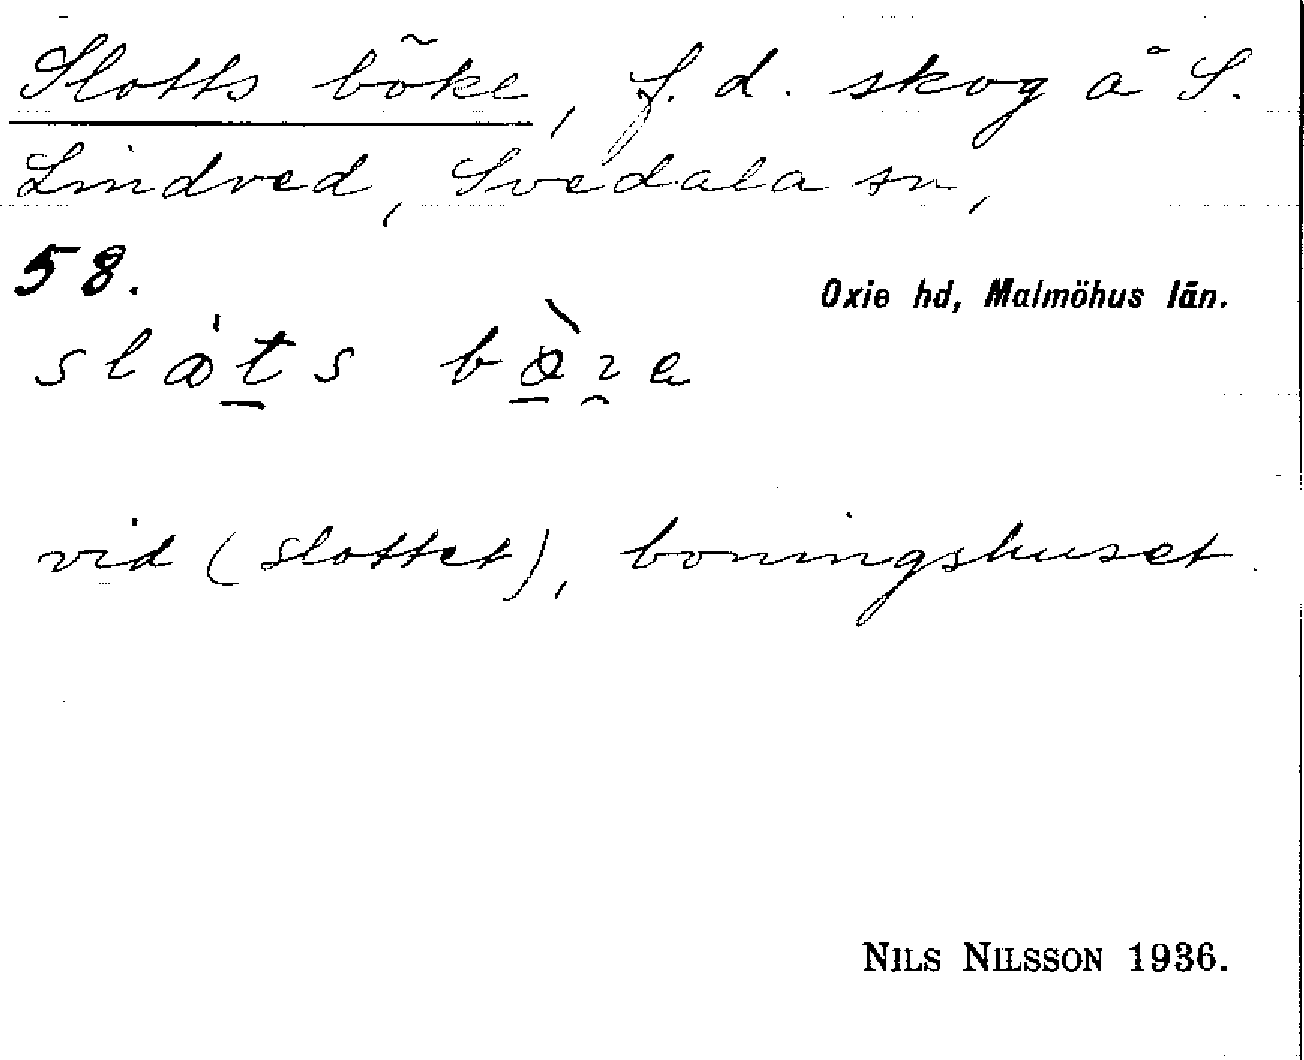 Slotts böke, f. d. skog å S.
Lindved, Svedala sn,
58.
Oxie hd, Malmöhus län.
vid (slottet), boningshuset.
NILS NILSSON 1936.